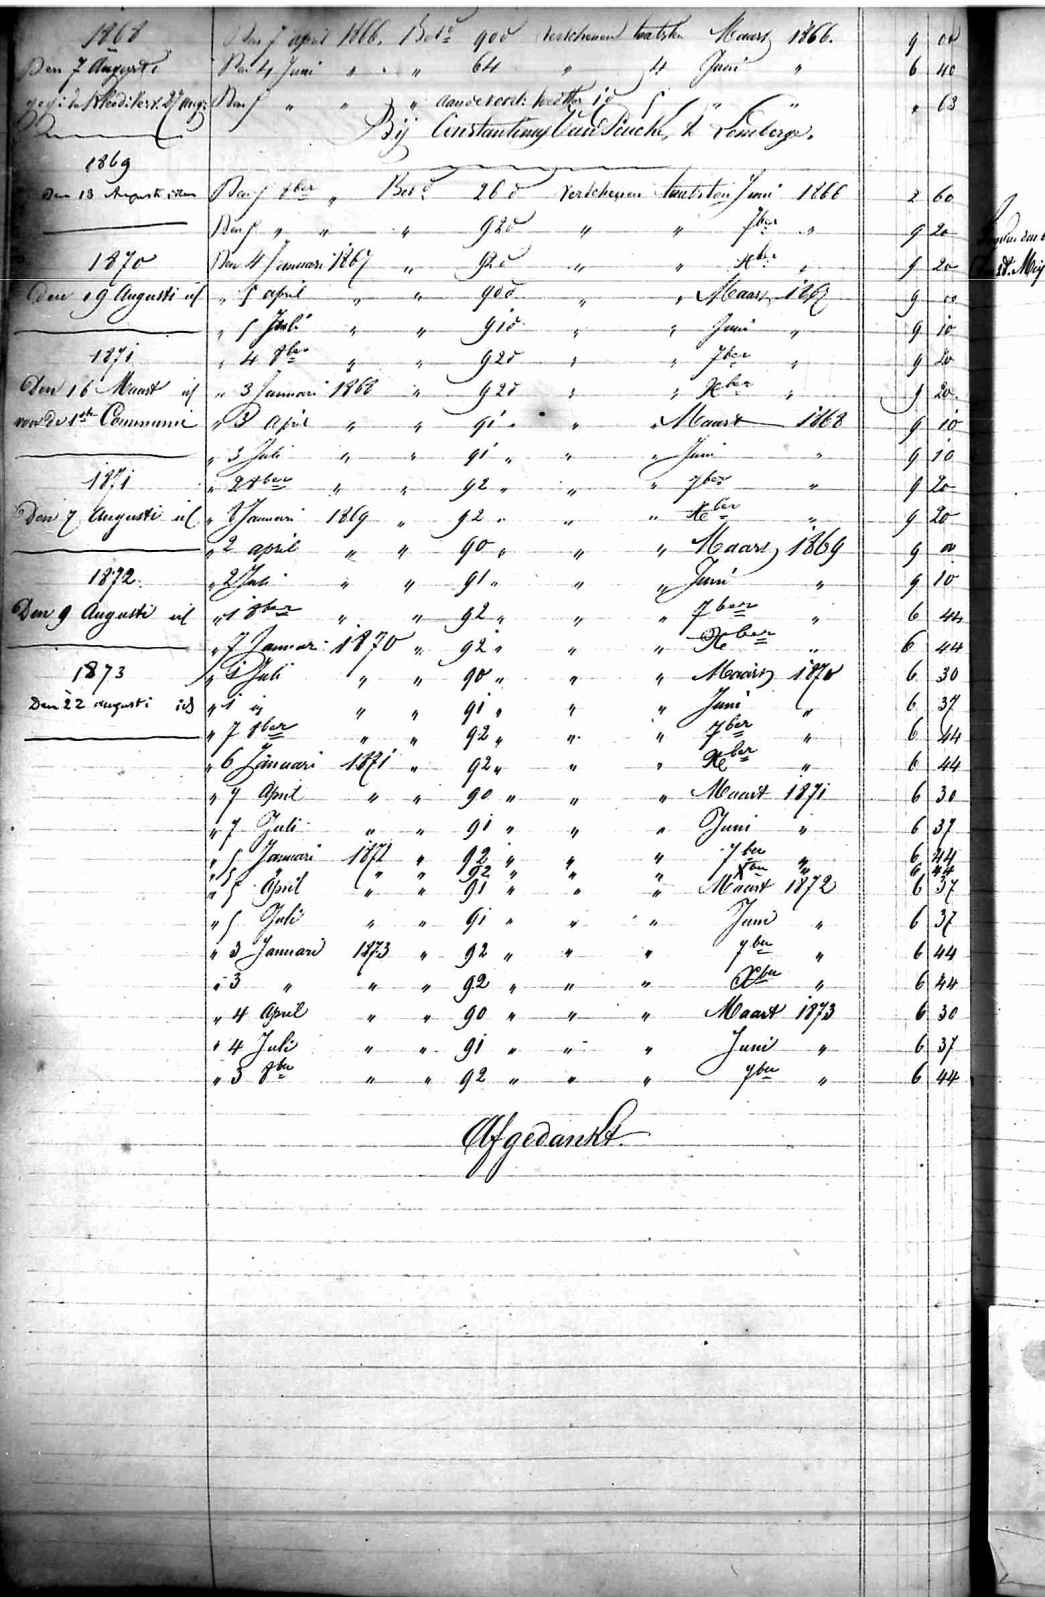 1868
Den 7 Augusti
1869
Den 13 Augusti idem
1870
Den 19 Augusti id
1871
Den 16 Maart id
voor de 1ste Communie
1871
Den 7 Augusti id
1872
Den 9 Augusti id
1873
Den 22 augusti id
Den 7 april 1866. Betd 90 d verschenen laatsten Maars 1866. 9 00
Den 4 Juni " " " 64 " 4 Juni " 6 40
" 63
Bij Constantinus Van
Den 5 8ber " Betd 26 d verschenen laatsten Juni 1866 2 60
Den 5 " " " 92 d " " 7ber " 9 20
Den 4 Januari 1867 " 92 d " " Xber " 9 20
" 5 april " " 90 d " " Maars 1867 9 00
" 5 Juli " " 91 d " " Juni " 9 10
" 4 8ber " " 92 d " " 7ber " 9 20
" 3 Januari 1868 " 92 d " " Xber " 9 20
" 3 april " " 91 " " " Maart 1868 9 10
" 3 Juli " " 91 " " " Juni " 9 10
" 2 8ber " " 92 " " " 7ber " 9 20
" 8 Januari 1869 " 92 " " " Xber " 9 20
" 2 april " " 90 " " " Maars 1869 9 00
" 2 Juli " " 91 " " " Juni " 9 10
" 1 8ber " " 92 " " " 7ber " 6 44
" 7 Januari 1870 " 92 " " " Xber " 6 44
" 1 Juli " " 90 " " " Maars 1870 6 30
" 1 " " " 91 " " " Juni " 6 37
" 7 8ber " " 92 " " " 7ber " 6 44
" 6 Januari 1871 " 92 " " " Xber " 6 44
" 7 April " " 90 " " " Maart 1871 6 30
" 7 Juli " " 91 " " " Juni " 6 37
" 5 Januari 1872 " 92 " " " 7ber " 6 44
" 5 " " " 92 " " " Xber " 6 44
" 5 April " " 91 " " " Maart 1872 6 37
" 5 Juli " " 91 " " " Juni " 6 37
" 3 Januari 1873 " 92 " " " 7ber " 6 44
" 3 " " " 92 " " " Xber " 6 44
" 4 April " " 90 " " " Maart 1873 6 30
" 4 Juli " " 91 " " " Juni " 6 37
" 3 8ber " " 92 " " " 7ber " 6 44
Afgedankt.